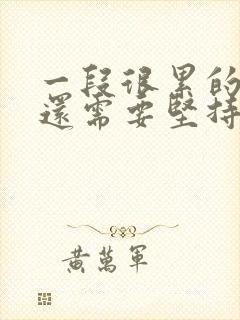 一段很累的
還需要堅持
黃萬軍